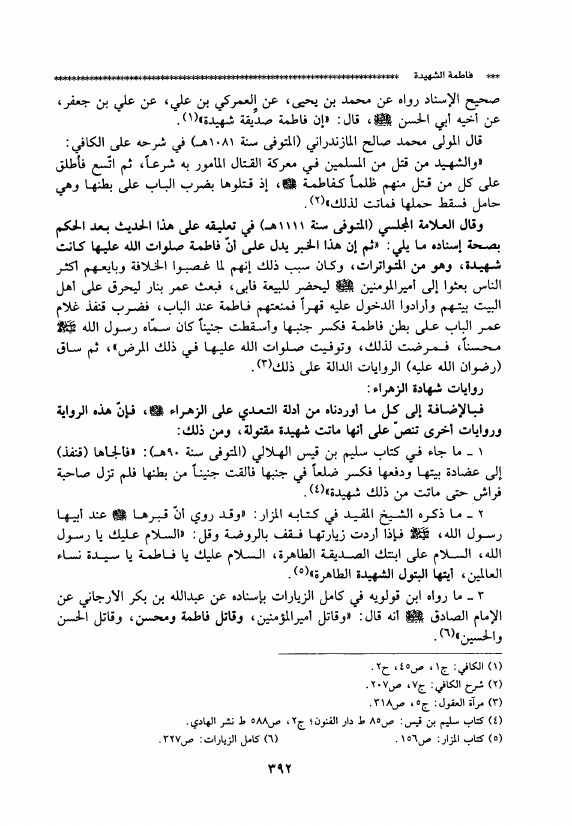 *** فاطمة الشهيدة ***
صحيح الإسناد رواه عن محمد بن يحيى، عن العمركي بن علي، عن علي بن جعفر،
عن أخيه أبي الحسن ﷺ، قال: «إن فاطمة صدّيقة شهيدة»(١).
قال المولى محمد صالح المازندراني (المتوفى سنة ١٠٨١هـ) في شرحه على الكافي:
«والشهيد من قتل من المسلمين في معركة القتال المأمور به شرعاً، ثم اتّسع فأطلق
على كل من قتل منهم ظلماً كفاطمة، إذ قتلوها بضرب الباب على بطنها وهي
حامل فسقط حملها فماتت لذلك»(٢).
وقال العلامة المجلسي (المتوفى سنة ١١١١هـ) في تعليقه على هذا الحديث بعد الحكم
بصحة إسناده ما يلي: «ثم إن هذا الخبر يدل على أنّ فاطمة صلوات الله عليها كانت
شهيدة، وهو من المتواترات، وكان سبب ذلك إنهم لما غصبوا الخلافة وبايعهم أكثر
الناس بعثوا إلى أميرالمومنين ليحضر للبيعة فابى، فبعث عمر بنار ليحرق على أهل
البيت بيتهم وأرادوا الدخول عليه قهراً فمنعتهم فاطمة عند الباب، فضرب قنفذ غلام
عمر الباب على بطن فاطمة فكسر جنبها وأسقطت جنيناً كان سمّاه رسول الله ﷺ
محسناً، فمرضت لذلك، وتوفيت صلوات الله عليها في ذلك المرض»، ثم ساق
(رضوان الله عليه) الروايات الدالة على ذلك(٣).
روايات شهادة الزهراء:
فبالإضافة إلى كل ما أوردناه من أدلة التعدي على الزهراء، فإنّ هذه الرواية
وروايات أخرى تنصّ على أنها ماتت شهيدة مقتولة، ومن ذلك:
١ ـ ما جاء في كتاب سليم بن قيس الهلالي (المتوفى سنة ٩٠هـ): «فالجاها (قنفذ)
إلى عضادة بيتها ودفعها فكسر ضلعاً في جنبها فالقت جنيناً من بطنها فلم تزل صاحبة
فراش حتى ماتت من ذلك شهيدة»(٤).
٢ ـ ما ذكره الشيخ المفيد في كتابه المزار: «وقد روي أنّ قبرها عند أبيها
رسول الله، ﷺ فإذا أردت زيارتها فقف بالروضة وقل: «السلام عليك يا رسول
الله، السلام على ابنتك الصديقة الطاهرة، السلام عليك يا فاطمة يا سيدة نساء
العالمين، أيتها البتول الشهيدة الطاهرة»(٥).
٣ ـ ما رواه ابن قولويه في كامل الزيارات بإسناده عن عبدالله بن بكر الأرجاني عن
الإمام الصادق أنه قال: «وقاتل أميرالمؤمنين، وقاتل فاطمة ومحسن، وقاتل الحسن
والحسين»(٦).
(١) الكافي: ج١، ص٤٥، ح٢.
(٢) شرح الكافي: ج٧، ص٢٠٧.
(٣) مرآة العقول: ج٥، ص٣١٨.
(٤) كتاب سليم بن قيس: ص٨٥ ط دار الفنون؛ ج٢، ص٥٨٨ ط نشر الهادي.
(٥) كتاب المزار: ص١٥٦. (٦) كامل الزيارات: ص٣٢٧.
٣٩٢